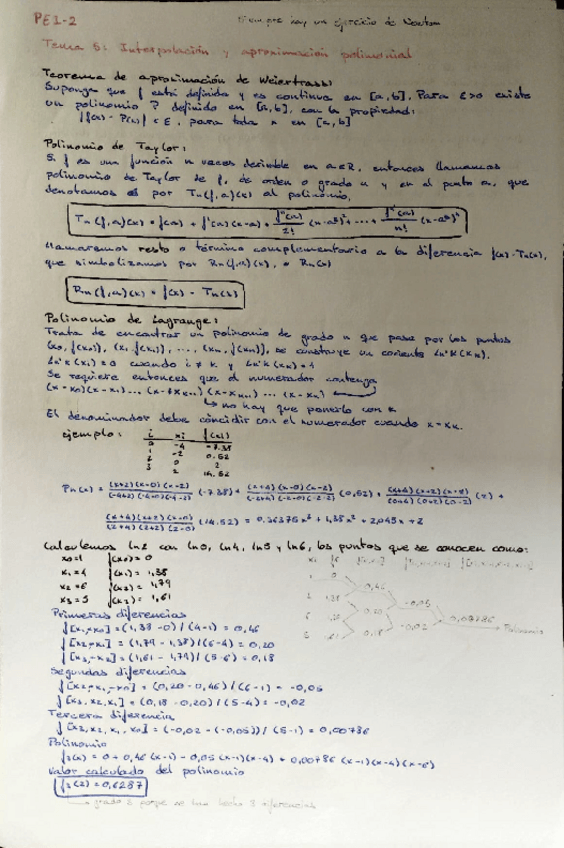 PE1-2
Siempre hay un ejercicio de Newton
Tema 5: Interpolación y aproximación polinomial
Teorema de aproximación de Weierstrass:
Suponga que f está definida y es continua en [a,b]. Para ε>0 existe
un polinomio P definido en [a,b], con la propiedad:
|f(x) - P(x)| < ε, para toda x en [a,b]
Polinomio de Taylor:
Si f es una función n veces derivable en a∈R, entonces llamamos
polinomio de Taylor de f, de orden o grado n y en el punto a, que
denotamos por Tn(f,a)(x) al polinomio,
Tn(f,a)(x) = f(a) + f'(a)(x-a) + f''(a)/2! (x-a)² + ... + fⁿ(a)/n! (x-a)ⁿ
Llamaremos resto o término complementario a la diferencia f(x)-Tn(x),
que simbolizamos por Rn(f,a)(x), o Rn(x)
Rn(f,a)(x) = f(x) - Tn(x)
Polinomio de Lagrange:
Trata de encontrar un polinomio de grado n que pase por los puntos
(x0, f(x0)), (x1, f(x1)), ..., (xn, f(xn)), se construye un cociente Ln'k(xk).
Ln'k(xi) = 0 cuando i ≠ k y Ln'k(xk) = 1
Se requiere entonces que el numerador contenga
(x-x0)(x-x1)...(x-xk-1)(x-xk+1)...(x-xn)
↳ no hay que ponerlo con k
El denominador debe coincidir con el numerador cuando x=xk.
ejemplo:
i xi f(xi)
0 -4 -7.38
1 -2 0.52
2 0 2
3 2 14.52
Pn(x) = (x+2)(x-0)(x-2)/(-4+2)(-4-0)(-4-2) (-7.38) + (x+4)(x-0)(x-2)/(-2+4)(-2-0)(-2-2) (0,52) + (x+4)(x+2)(x-2)/(0+4)(0+2)(0-2) (2) +
(x+4)(x+2)(x-0)/(2+4)(2+2)(2-0) (14.52) = 0,36375x³ + 1,38x² + 2,045x + 2
Calculemos ln2 con ln0, ln4, ln5 y ln6, los puntos que se conocen como:
x0=1 f(x0) = 0
x1=4 f(x1) = 1,38
x2=6 f(x2) = 1,79
x3=5 f(x3) = 1,61
0,46
1,38
0,20
-0,05
0,18
-0,02
0,00786
Polinomio
Primeras diferencias
f[x1,x0] = (1,38-0)/(4-1) = 0,46
f[x2,x1] = (1,79-1,38)/(6-4) = 0,20
f[x3,x2] = (1,61-1,79)/(5-6) = 0,18
Segundas diferencias
f[x2,x1,x0] = (0,20-0,46)/(6-1) = -0,05
f[x3,x2,x1] = (0,18-0,20)/(5-4) = -0,02
Tercera diferencia
f[x3,x2,x1,x0] = (-0,02-(-0,05))/(5-1) = 0,00786
Polinomio
f3(x) = 0 + 0,46(x-1) - 0,05(x-1)(x-4) + 0,00786(x-1)(x-4)(x-6)
Valor calculado del polinomio
f3(2) = 0,6287
↳ grado 3 porque se han hecho 3 diferencias